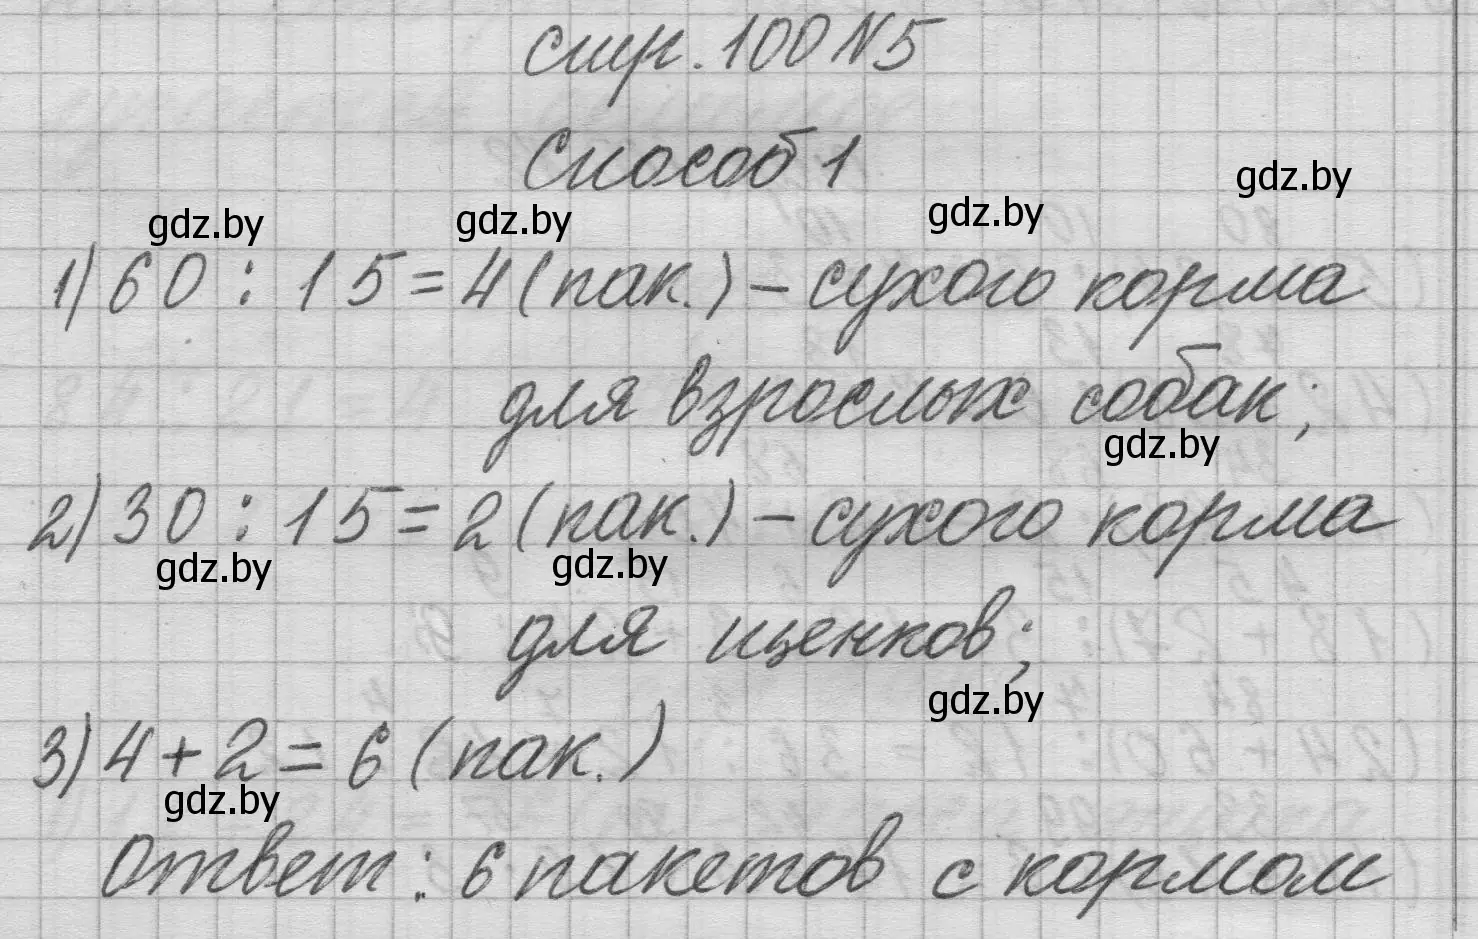 стр. 100 N5
Способ 1
gdz.by gdz.by gdz.by gdz.by
1) 60 : 15 = 4 (пак.) - сухого корма
для взрослых собак;
gdz.by
2) 30 : 15 = 2 (пак.) - сухого корма
gdz.by gdz.by
для щенков;
gdz.by
3) 4 + 2 = 6 (пак.)
gdz.by
Ответ: 6 пакетов с кормом